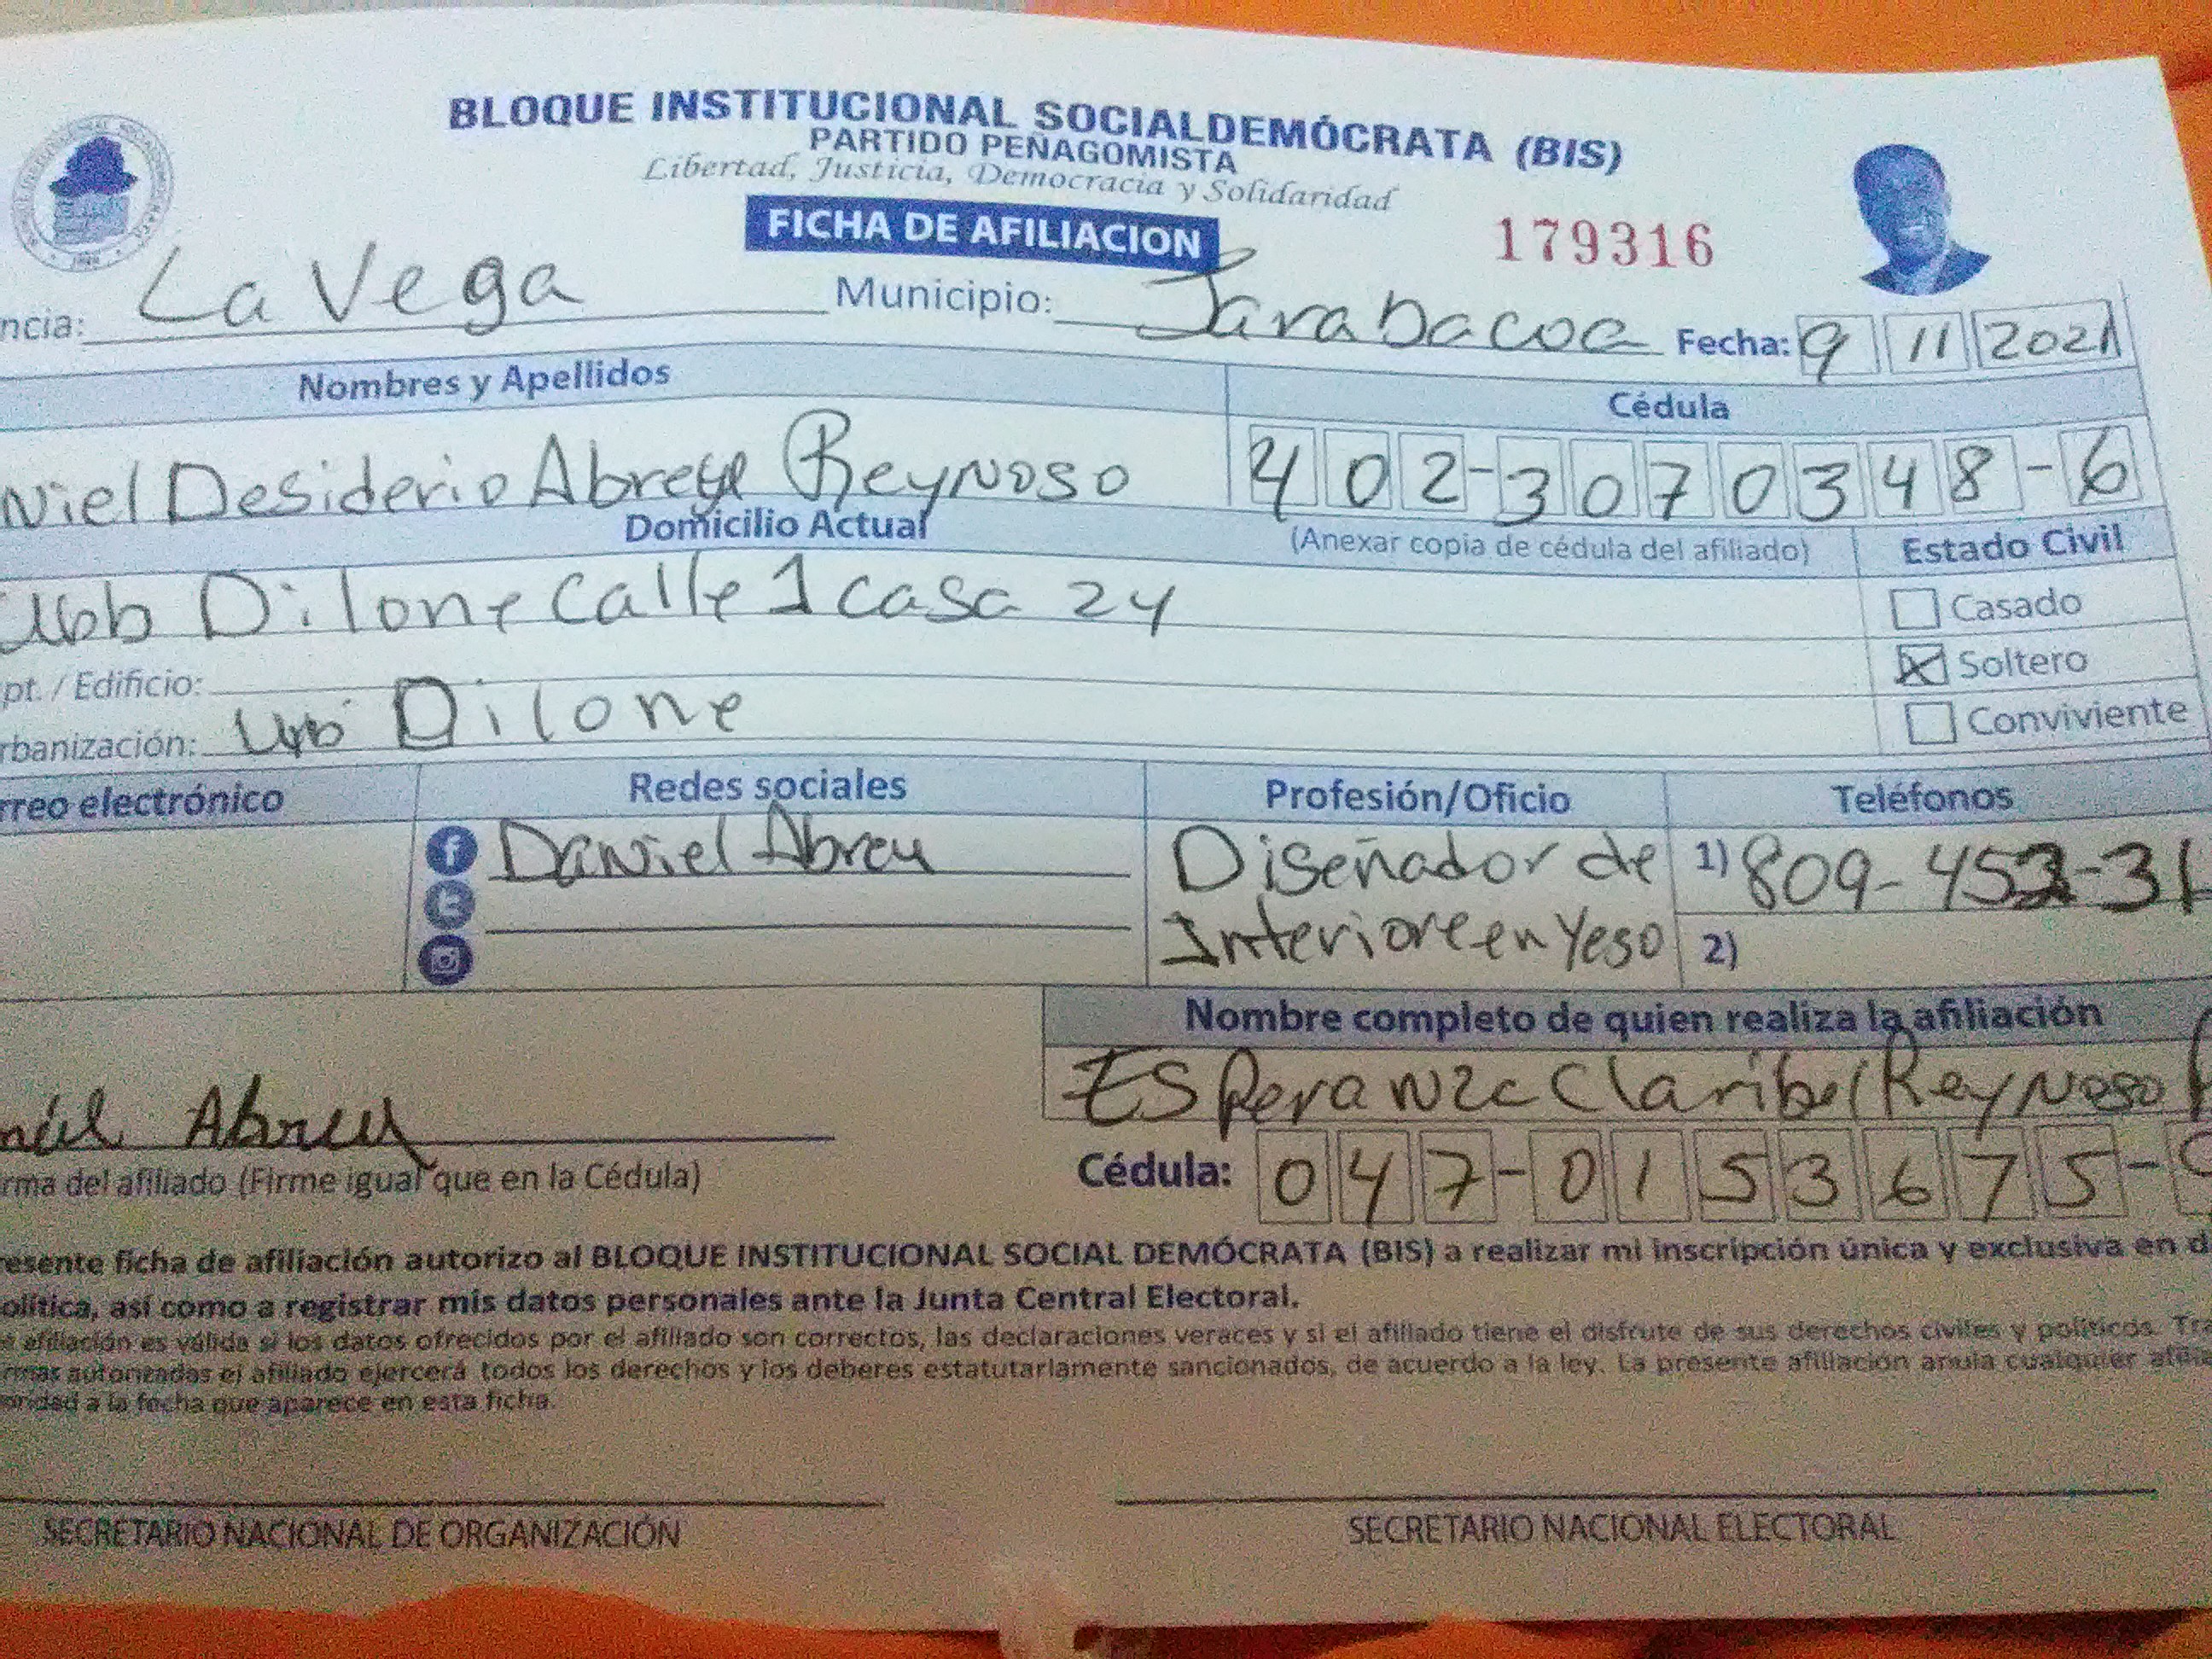 BLOQUE INSTITUCIONAL SOCIALDEMÓCRATA (BIS)
PARTIDO PEÑAGOMISTA
Libertad, Justicia, Democracia y Solidaridad
FICHA DE AFILIACION
179316
ncia: La Vega Municipio: Jarabacoa Fecha: 9 11 2021
Nombres y Apellidos Cédula
niel Desiderio Abreu Reynoso 402-3070348-6
Domicilio Actual (Anexar copia de cédula del afiliado) Estado Civil
Urb Dilone Calle 1 casa 24
Casado
pt. / Edificio: Soltero
rbanización: Urb Dilone Conviviente
rreo electrónico Redes sociales Profesión/Oficio Teléfonos
Daniel Abreu Diseñador de 1) 809-45 -31
Interiore en Yeso 2)
Nombre completo de quien realiza la afiliación
Esperanza Claribel Reynoso
niel Abreu
rma del afiliado (Firme igual que en la Cédula) Cédula: 047-0153675-
resente ficha de afiliación autorizo al BLOQUE INSTITUCIONAL SOCIAL DEMÓCRATA (BIS) a realizar mi inscripción única y exclusiva en
olítica, así como a registrar mis datos personales ante la Junta Central Electoral.
afiliación es válida si los datos ofrecidos por el afiliado son correctos, las declaraciones veraces y si el afiliado tiene el disfrute de sus derechos civiles y políticos.
autorizadas el afiliado ejercerá todos los derechos y los deberes estatutariamente sancionados, de acuerdo a la ley. La presente afiliación anula cualquier
oridad a la fecha que aparece en esta ficha.
SECRETARIO NACIONAL DE ORGANIZACIÓN SECRETARIO NACIONAL ELECTORAL